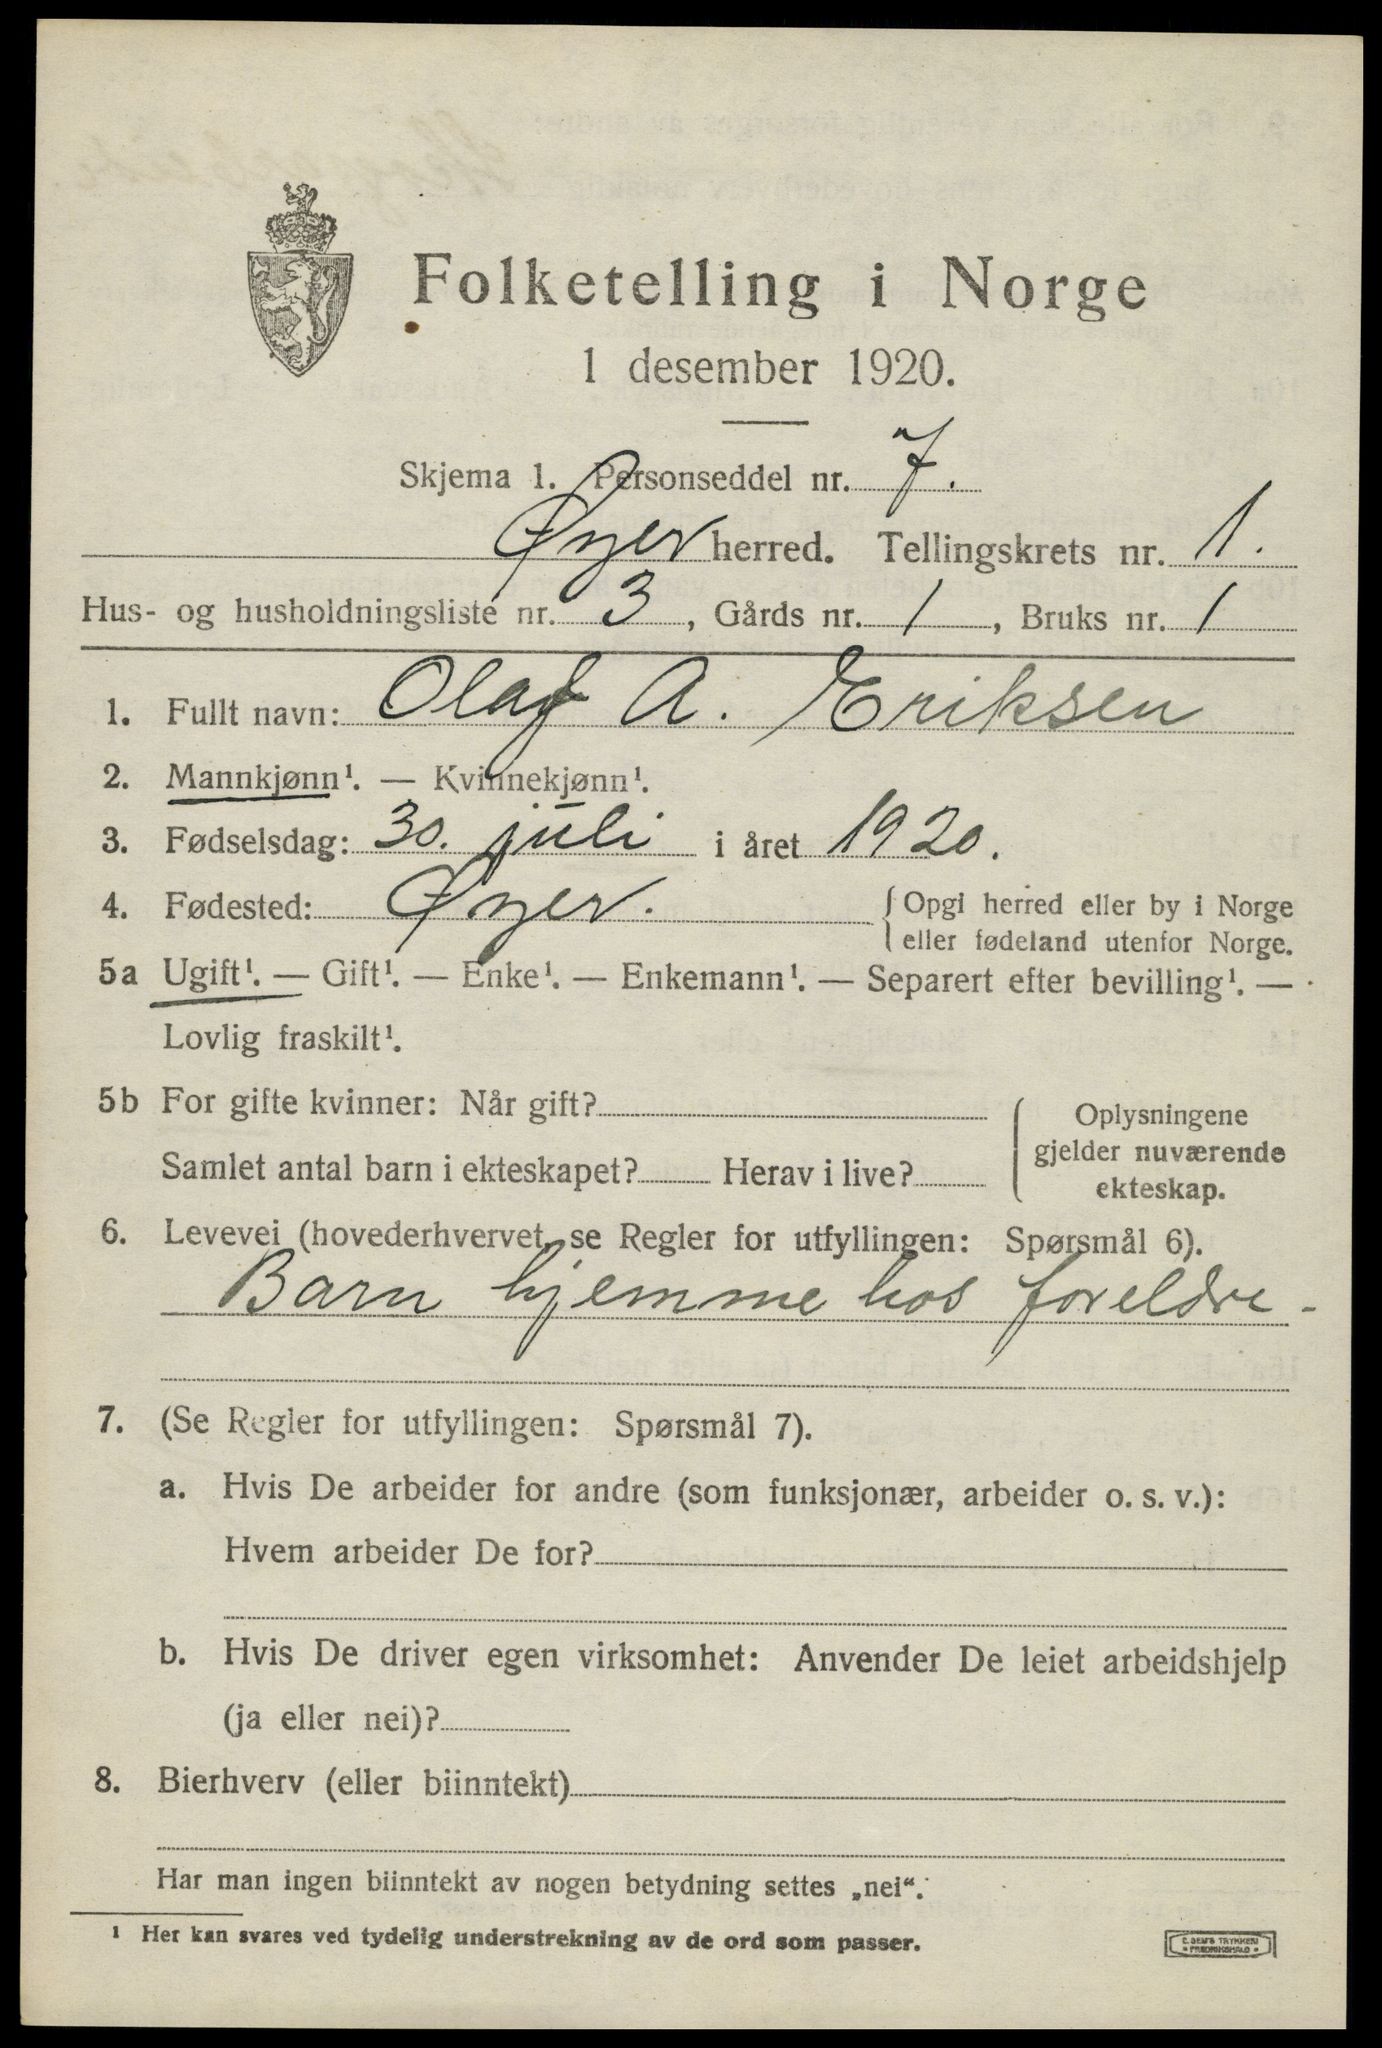 Folketelling i Norge
1 desember 1920.
Skjema 1. Personseddel nr. 7.
Øyer herred. Tellingskrets nr. 1.
Hus- og husholdningsliste nr. 3, Gårds nr. 1, Bruks nr. 1
1. Fullt navn: Olaf A. Eriksen
2. Mannkjønn¹. — Kvinnekjønn¹.
3. Fødselsdag: 30. juli i året 1920.
4. Fødested: Øyer. { Opgi herred eller by i Norge
eller fødeland utenfor Norge.
5a Ugift¹. — Gift¹. — Enke¹. — Enkemann¹. — Separert efter bevilling¹. —
Lovlig fraskilt¹.
5b For gifte kvinner: Når gift?
Samlet antal barn i ekteskapet? Herav i live?
Oplysningene
gjelder nuværende
ekteskap.
6. Levevei (hovederhvervet, se Regler for utfyllingen: Spørsmål 6).
Barn hjemme hos foreldre -
7. (Se Regler for utfyllingen: Spørsmål 7).
a. Hvis De arbeider for andre (som funksjonær, arbeider o. s. v.):
Hvem arbeider De for?
b. Hvis De driver egen virksomhet: Anvender De leiet arbeidshjelp
(ja eller nei)?
8. Bierhverv (eller biinntekt)
Har man ingen biinntekt av nogen betydning settes „nei“.
¹ Her kan svares ved tydelig understrekning av de ord som passer.
E. SEM'S TRYKKERI
* FREDRIKSHALD *